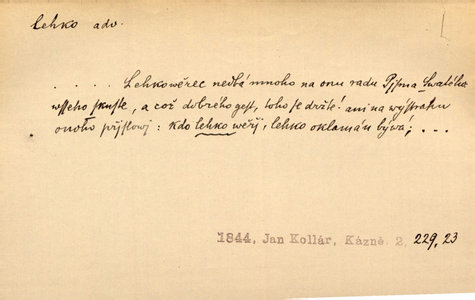 lehko adv.
. . . . . Lehkowěrec nedbá mnoho na onu radu Pjsma Swatého:
wsseho zkuste, a což dobrého gest, toho se držte! ani na wýstrahu
onoho přjslowj: kdo lehko wěřj, lehko oklamán býwá; . . .
1844, Jan Kollár, Kázně. 2, 229, 23